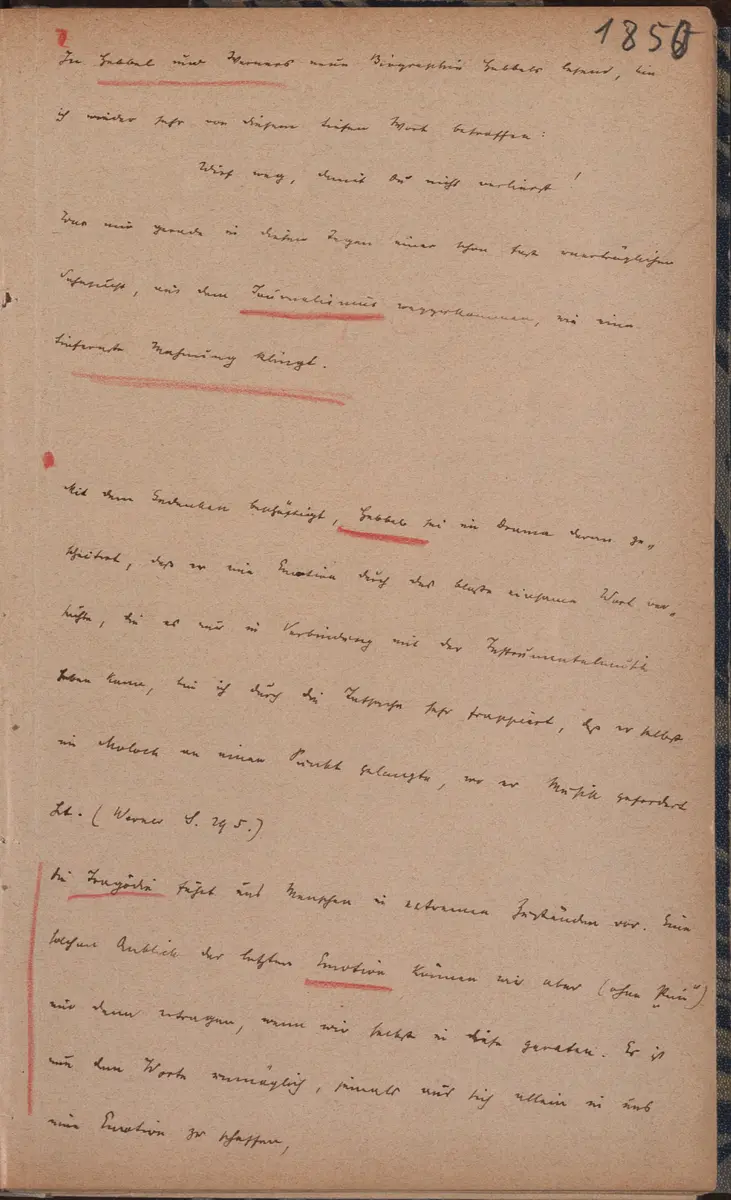 1850
In Hebbel und Werners neue Biographie Hebbels lesend, bin
ich wieder sehr von diesem tiefen Wort betroffen:
Wirf weg, damit Du nicht verlierst!
Was mir gerade in diesen Tagen einer schon fast unerträglichen
Sehnsucht, aus dem Journalismus wegzukommen, wie eine
tiefernste Mahnung klingt.
Mit dem Gedanken beschäftigt, Hebbel sei im Drama daran ge-
scheitert, daß er eine Emotion durch das bloße einsame Wort ver-
suchte, die es nur in Verbindung mit der Instrumentalmusik
haben kann, bin ich durch die Tatsache sehr frappiert, daß er selbst
im Moloch an einen Punkt gelangte, wo er Musik gefordert
hat. (Werner S. 295.)
Die Tragödie führt uns Menschen in extremen Zuständen vor. Einen
solchen Anblick der letzten Emotion können wir aber (ohne Pein)
nur dann ertragen, wenn wir selbst in diese geraten. Es ist
nun dem Worte unmöglich, jemals aus sich allein in uns
eine Emotion zu schaffen,